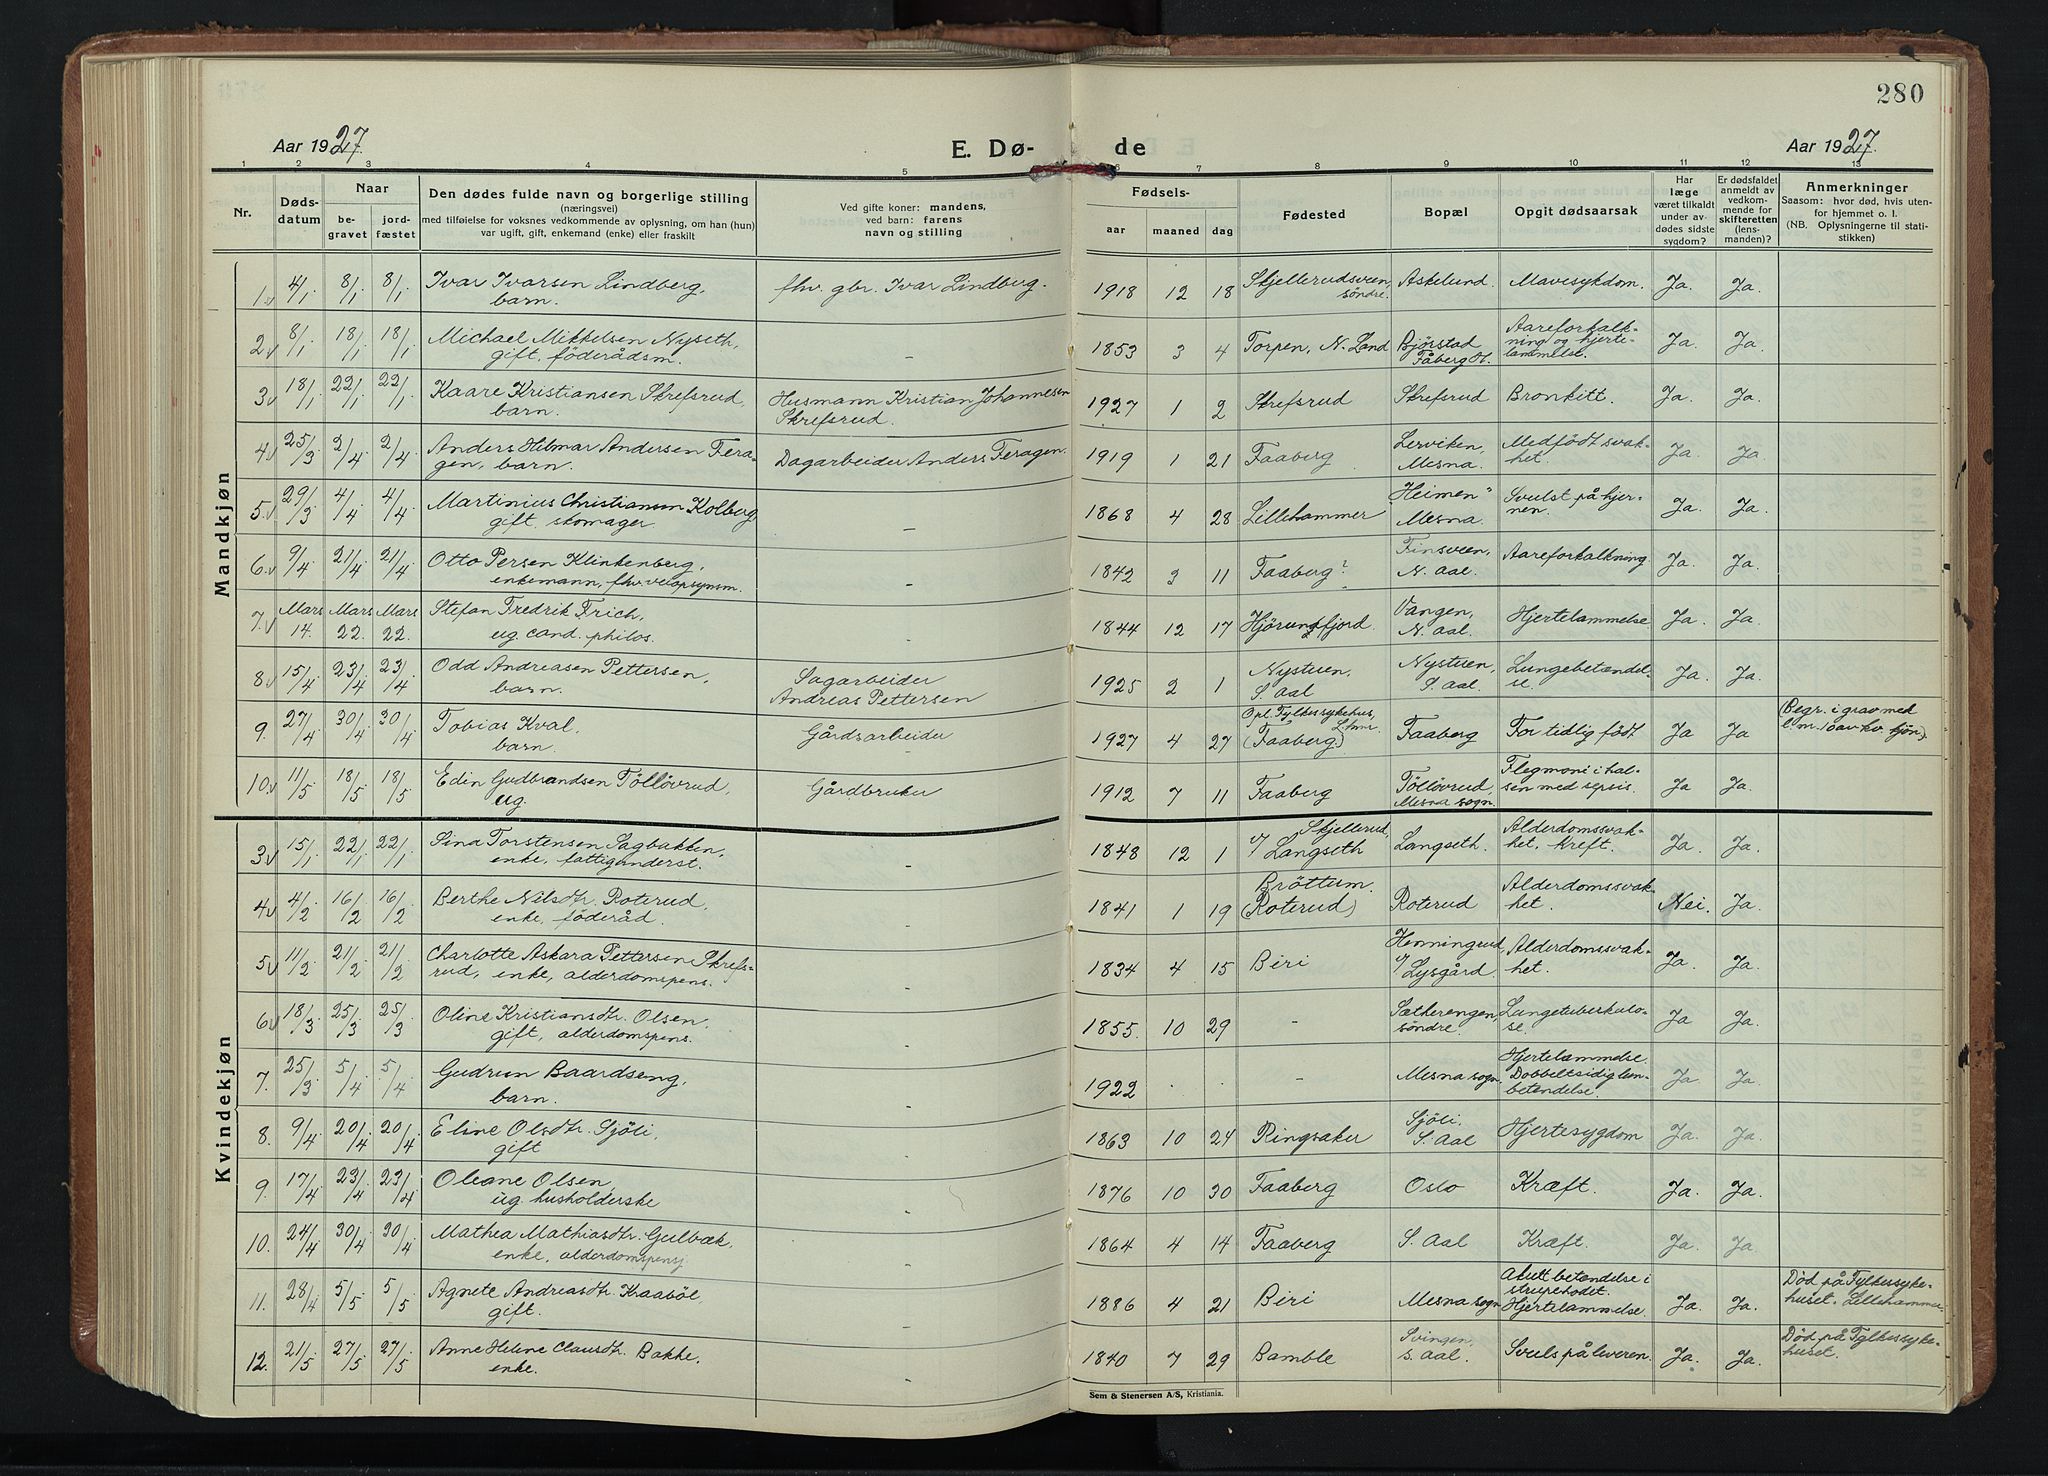 280
Aar 1927
E. Dø-
de
Aar 1927.
1 2 3 4 5 6 7 8 9 10 11 12 13
Nr.
Døds-
datum
Naar
be-
gravet
jord-
fæstet
Den dødes fulde navn og borgerlige stilling
(næringsvei)
med tilføielse for voksnes vedkommende av oplysning, om han (hun)
var ugift, gift, enkemand (enke) eller fraskilt
Ved gifte koner: mandens,
ved barn: farens
navn og stilling
Fødsels-
aar maaned dag
Fødested
Bopæl
Opgit dødsaarsak
Har
læge
været tilkaldt
under av-
dødes sidste
sygdom?
Er dødsfaldet
anmeldt av
vedkom-
mende for
skifteretten
(lens-
manden)?
Anmerkninger
Saasom: hvor død, hvis uten-
for hjemmet o. l.
(NB. Oplysningerne til stati-
stikken)
Mandkjøn
1v 4/1 8/1 8/1 Ivar Ivarsen Lindberg, fhv. gbr. Ivar Lindberg. 1918 12 18 Skjellerudsveen, Askelund. Mavesykdom. Ja. Ja.
barn. søndre.
2v 8/1 18/1 18/1 Michael Mikkelsen Nyseth, – 1853 3 4 Torpen, N. Land Bjørstad Aareforkalk- Ja. Ja.
gift, føderådsm. Fåberg ning og hjerte-
lammelse.
3v 18/1 22/1 22/1 Kaare Kristiansen Skrefsrud, Husmann Kristian Johannesen 1927 1 2 Skrefsrud Skrefsrud Bronkitt. Ja. Ja.
barn. Skrefsrud.
4v 25/3 2/4 2/4 Anders Hilmar Andersen Fera- Dagarbeider Anders Feragen. 1919 1 21 Faaberg Lerviken, Medfødt svak- Ja. Ja.
gen, barn. Mesna. het.
5v 29/3 4/4 4/4 Martinius Christiansen Kolberg – 1868 4 28 Lillehammer "Heimen" Svulst på hjer- Ja. Ja.
gift, skomager. Mesna. nen.
6v 9/4 21/4 21/4 Otto Persen Klinkenberg, – 1842 3 11 Faaberg? Finsveen, Aareforkalkning. Ja. Ja.
enkemann, fhv. veiopsynsm. N. Aal.
7v Mars 14. Mars 22. Mars 22. Stefan Fredrik Frich, – 1844 12 17 Hjørungfjord. Vangen, Hjertelammelse Ja. Ja.
ug. cand. philos. N. Aal.
8v 15/4 23/4 23/4 Odd Andreasen Pettersen, Sagarbeider 1925 2 1 Nystuen, Nystuen, Lungebetændel- Ja. Ja.
barn. Andreas Pettersen S. Aal S. Aal. se.
9. 27/4 30/4 30/4 Tobias Kval, Gårdsarbeider 1927 4 27 Opl. Fylkessykehus, Lhmr. Faaberg For tidlig født Ja Ja (Begr. i grav med
barn. (Faaberg.) l.nr. 10 av kv. kjøn)
10v 11/5 18/5 18/5 Edin Gudbrandsen Tølløvrud, Gårdbruker 1912 7 11 Faaberg Tølløvrud, Flegmoni i hal- Ja Ja.
ug. Mesna sogn. sen med sepsis.
Kvindekjøn
3v 15/1 22/1 22/1 Sina Torstensen Sagbakken, – 1848 12 1 Skjellerud, Langseth. Alderdomssvak- Ja. Ja.
enke, fattigunderst. v/ Langseth het. Kreft.
4v 4/2 16/2 16/2 Berthe Nilsdtr. Roterud, – 1841 1 19 Brøttum. Roterud Alderdomssvak- Nei. Ja.
enke, føderåd. (Roterud) het.
5v 11/2 21/2 21/2 Charlotte Askara Pettersen Skrefs- – 1834 4 15 Biri Henningsrud, Alderdomssvak- Ja. Ja.
rud, enke, alderdomspens. v/ Lysgård. het.
6v 18/3 25/3 25/3 Oline Kristiansdtr. Olsen, – 1855. 10 29 – Sætherengen, Lungetuberkulo- Ja Ja.
gift, alderdomspens. søndre. se.
7. 25/3 5/4 5/4 Gudrun Baardseng, – 1922 . . – Mesna sogn. Hjertelammelse Ja Ja.
barn. Dobbeltsidig lun-
betendelse.
8. 9/4 20/4 20/4 Eline Olsdtr. Sjøli, – 1863 10 24 Ringsaker Sjøli, Hjertesygdom Ja. Ja.
gift S. Aal
9. 17/4 23/4 23/4 Oleane Olsen, – 1876 10 30 Faaberg Oslo Kræft. Ja. Ja.
ug. husholderske
10. 24/4 30/4 30/4 Mathea Mathiasdtr. Gulbæk, – 1864 4 14 Faaberg S. Aal Kræft. Ja. Ja.
enke, alderdomspensj
11. 28/4 5/5 5/5 Agnete Andreasdtr. Kraabøl, – 1886 4 21 Biri Mesna sogn Akutt betændelse i Ja. Ja. Død på Fylkessyke-
gift. strupehodet. huset. Lillehammer
Hjertelammelse.
12. 21/5 27/5 27/5 Anne Helene Clausdtr. Bakke, – 1840 7 29 Bamble Svingen, Svuls på leveren. Ja. Ja. Død på Fylkessyke-
enke. S. Aal. huset.
Sem & Stenersen A/S, Kristiania.